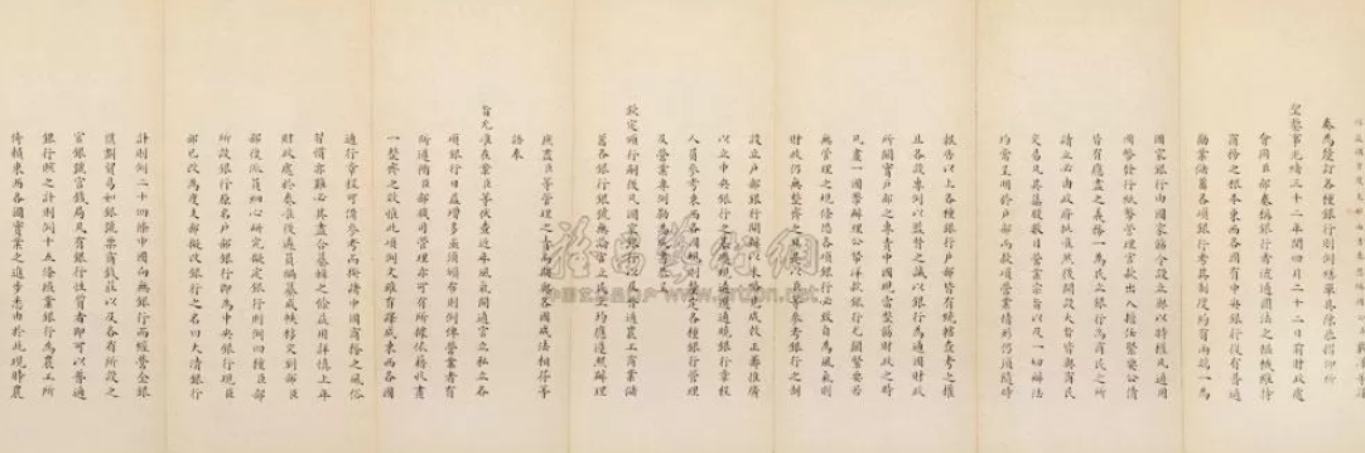 奏為釐訂各種銀行則例繕單具陳恭摺仰祈
聖鑒事光緒三十二年閏四月二十二日前財政處
會同臣部奏稱銀行者流通國法之樞機維持
商務之根本東西各國有中央銀行復有普通
勸業儲蓄各項銀行考其制度約有兩端一為
國家銀行由國家飭令設立與以特權凡通用
國幣發行紙幣管理官款出入擔任緊要公債
皆有應盡之義務一為民立銀行為商民之所
請立必由政府批准然後開設大旨皆與商民
交易凡其基股數目營業宗旨以及一切辦法
均需呈明於戶部而款項營業情形仍須隨時
報告以上各種銀行戶部皆有統轄查考之權
且各設專例以監督之誠以銀行為通國財政
所關實戶部之專責中國現當整飭財政之時
凡畫一國幣辦理公債洋款銀行尤關緊要若
無管理之規條恐各項銀行必致自為風氣則
財政仍無整齊之日臣等參考銀行之制
設立戶部銀行開辦以來漸已成效正籌推廣
以立中央銀行之基礎現遴選通曉銀行章程
人員參考東西各國規則釐定各種銀行管理
及營業專例勒為成書恭呈
欽定頒行嗣後凡國家銀行以及普通農工商業儲
蓄各銀行銀號無論官立民立均應遵照辦理
庶盡臣等管理之責而期與各國成法相符等
語奉
旨允准在案臣等伏查近年風氣開通官立私立各
項銀行日益增多亟須頒布則例俾營業者有
所遵循臣部錢司管理亦可有所據依藉收畫
一整齊之效惟此項例文雖有譯成東西各國
通行章程可備參考而按諸中國商務之風俗
習慣亦難必其盡合纂輯之餘或用詳慎上年
財政處於奏准後遴員編纂成帙移交到部臣
部復派員細心研究擬定銀行則例四種臣部
所設銀行原名戶部銀行即為中央銀行現臣
部已改為度支部擬改銀行之名曰大清銀行
計則例二十四條中國向無銀行而經營金銀
匯劃貿易如銀號票商錢莊以及各省所設之
官銀號官錢局凡有銀行性質者即可以普通
銀行賅之計則例十五條殖業銀行為農工所
倚賴東西各國實業之進步悉由於此現時農